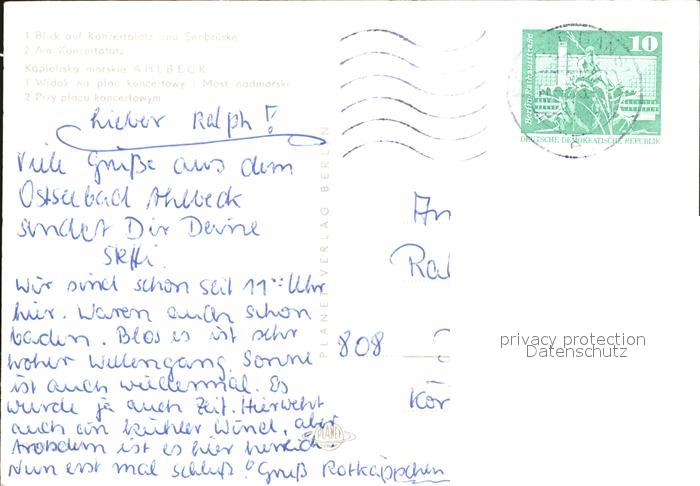 1 Blick auf Konzertplatz und Seebrücke
2 Am Konzertplatz
Kąpielisko morskie AHLBECK
1 Widok na plac koncertowy i Most nadmorski
2 Przy placu koncertowym
Lieber Ralph!
Viele Grüße aus dem
Ostseebad Ahlbeck
sendet Dir Deine
Steffi.
Wir sind schon seit 11 Uhr
hier. Waren auch schon
baden. Blos es ist sehr
hoher Wellengang. Sonne
ist auch wiedermal. Es
wurde ja auch Zeit. Hier weht
auch ein kühler Wind, aber
trotzdem ist es hier herrlich.
Nun erst mal schluß! Gruß Rotkäppchen
PLANET-VERLAG BERLIN
PLANET
Berlin-Rathausstraße
10
DEUTSCHE DEMOKRATISCHE REPUBLIK
An
Ral
808
Kör
privacy protection
Datenschutz